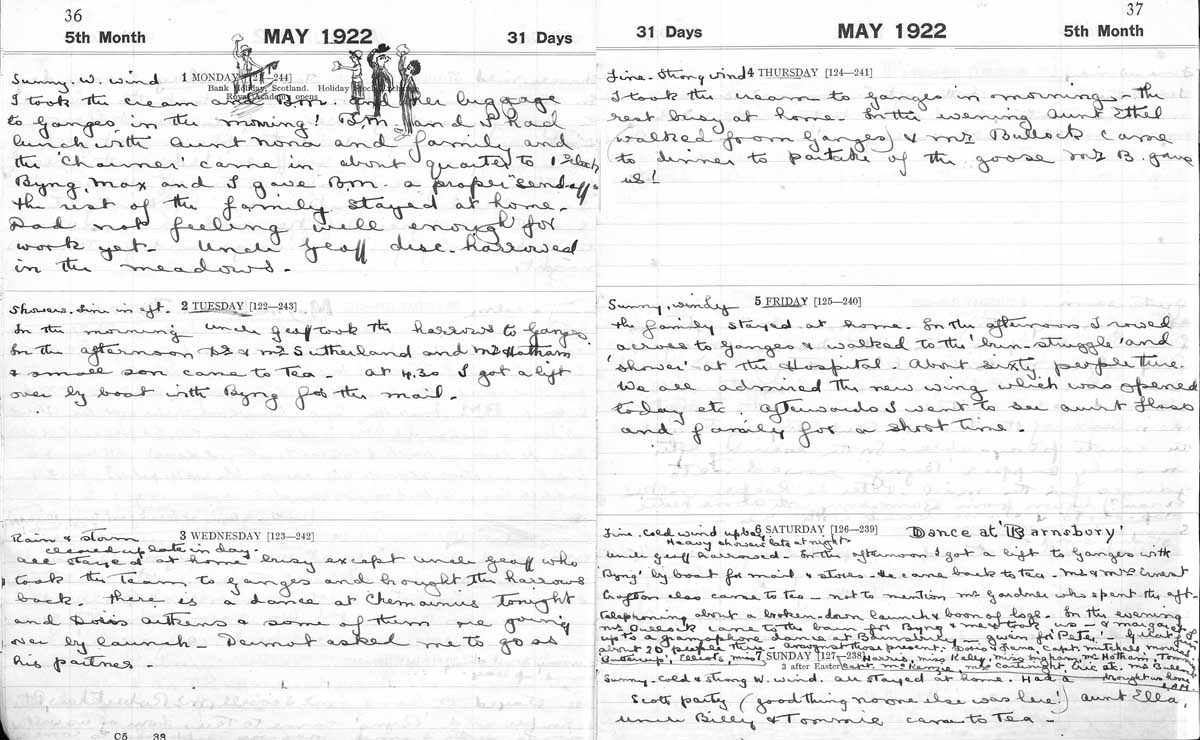 36
5th Month MAY 1922 31 Days
Sunny. W. wind 1 MONDAY [121—244]
Bank Holiday, Scotland. Holiday Stock Exchange.
Royal Academy opens
I took the cream and B.M. and her luggage
to Ganges in the morning! B.M. and I had
lunch with Aunt Nona and family and
the 'Charmer' came in about quarter to 1 o'clock
Byng, Max and I gave B.M. a proper "send-off"
the rest of the family stayed at home.
Dad not feeling well enough for
work yet. Uncle Geoff disc-harrowed
in the meadows.
Showers. fine in aft. 2 TUESDAY [122—243]
In the morning Uncle Geoff took the harrows to Ganges.
In the afternoon Dr & Mrs Sutherland and Mrs Hotham
& small son came to tea - at 4.30 I got a lift
over by boat with Byng for the mail.
Rain & storm 3 WEDNESDAY [123—242]
cleared up late in day.
all stayed at home busy except Uncle Geoff who
took the team to Ganges and brought the harrows
back. there is a dance at Chemainus tonight
and Doris aitkens & some of them are going
over by launch. Dermot asked me to go as
his partner.
C5 38
37
31 Days MAY 1922 5th Month
Fine - Strong wind 4 THURSDAY [124—241]
I took the cream to Ganges in morning - the
rest busy at home. In the evening Aunt Ethel
(walked from Ganges) & Mr Bullock came
to dinner to partake of the goose Mr B. gave
us!
Sunny, windy 5 FRIDAY [125—240]
the family stayed at home. In the afternoon I rowed
across to Ganges & walked to the 'bun-struggle' and
'shower' at the Hospital. About sixty people there.
We all admired the new wing which was opened
today etc. afterwards I went to see aunt Floss
and family for a short time.
Fine. Cold wind 6 SATURDAY [126—239] Dance at 'Barnsbury'
Heavy showers late at night
Uncle Geoff harrowed. In the afternoon I got a lift to Ganges with
'Byng' by boat for mail & stores. He came back to tea. Mr & Mrs Ernest
Crofton also came to tea - not to mention Mr Gardner who spent the aft-
telephoning about a broken down launch & boom of logs. In the evening
Mr Bullock came to the for Byng & me & took us - & Margaret
up to a gramophone dance at Barnsbury - given for 'Pete' -
about 20 people there - amongst those present. Doris & Capt. Mitchell,
'Buttercup', Elliots, Miss Harris, Miss Kelly, Miss Ingham, Mr Hotham,
7 SUNDAY [127—238]
3 after Easter Capt. McKenzie, Mr Cartwright, Eric etc. Mr Bullock
brought us home
Sunny - Cold & strong W. wind. all stayed at home. Had a
Scott party (good thing no one else was here!) aunt Ella,
Uncle Billy & Tommie came to tea -